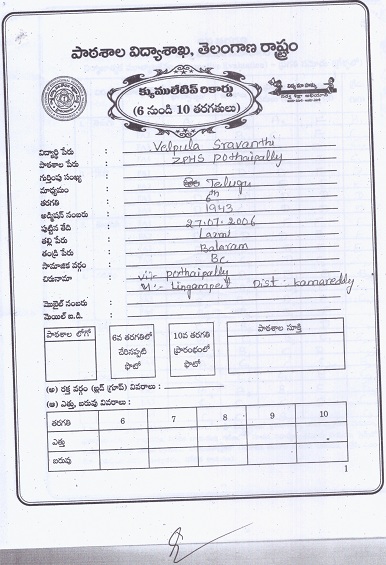 పాఠశాల విద్యాశాఖ, తెలంగాణ రాష్ట్రం
క్యుములేటివ్ రికార్డు
(6 నుండి 10 తరగతులు)
విద్యార్థి పేరు : Velpula Sravanthi
పాఠశాల పేరు : ZPHS Pothaipally
గుర్తింపు సంఖ్య :
మాధ్యమం : Telugu
తరగతి : 6th
అడ్మిషన్ నంబరు : 1943
పుట్టిన తేది : 27.07.2006
తల్లి పేరు : Laxmi
తండ్రి పేరు : Balaram
సామాజిక వర్గం : Bc
చిరునామా : Vil:- Pothaipally
M:- Lingampet Dist: Kamareddy
మొబైల్ నంబరు :
మెయిల్ ఐ.డి. :
పాఠశాల లోగో
6వ తరగతిలో చేరినప్పటి ఫొటో
10వ తరగతి ప్రారంభంలో ఫొటో
పాఠశాల సూక్తి
(అ) రక్త వర్గం (బ్లడ్ గ్రూప్) వివరాలు :
(ఆ) ఎత్తు, బరువు వివరాలు :
తరగతి 6 7 8 9 10
ఎత్తు
బరువు
1